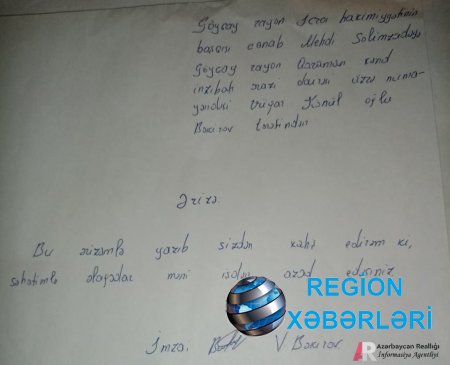 Göyçay rayon İcra hakimiyyətinin
başçısı cənab Mehdi Səlimzadəyə
Göyçay rayon Qaraman kənd
inzibati ərazi dairəsi üzrə nüma-
yəndəsi Vüqar Kamil oğlu
Bəkirov tərəfindən
Ərizə.
Bu ərizəmlə yazıb sizdən xahiş edirəm ki,
səhətimlə əlaqədar məni işdən azad edəsiniz
REGION
XƏBƏRLƏRİ
İmza. V Bəkirov
Azərbaycan Reallığı
İnformasiya Agentliyi